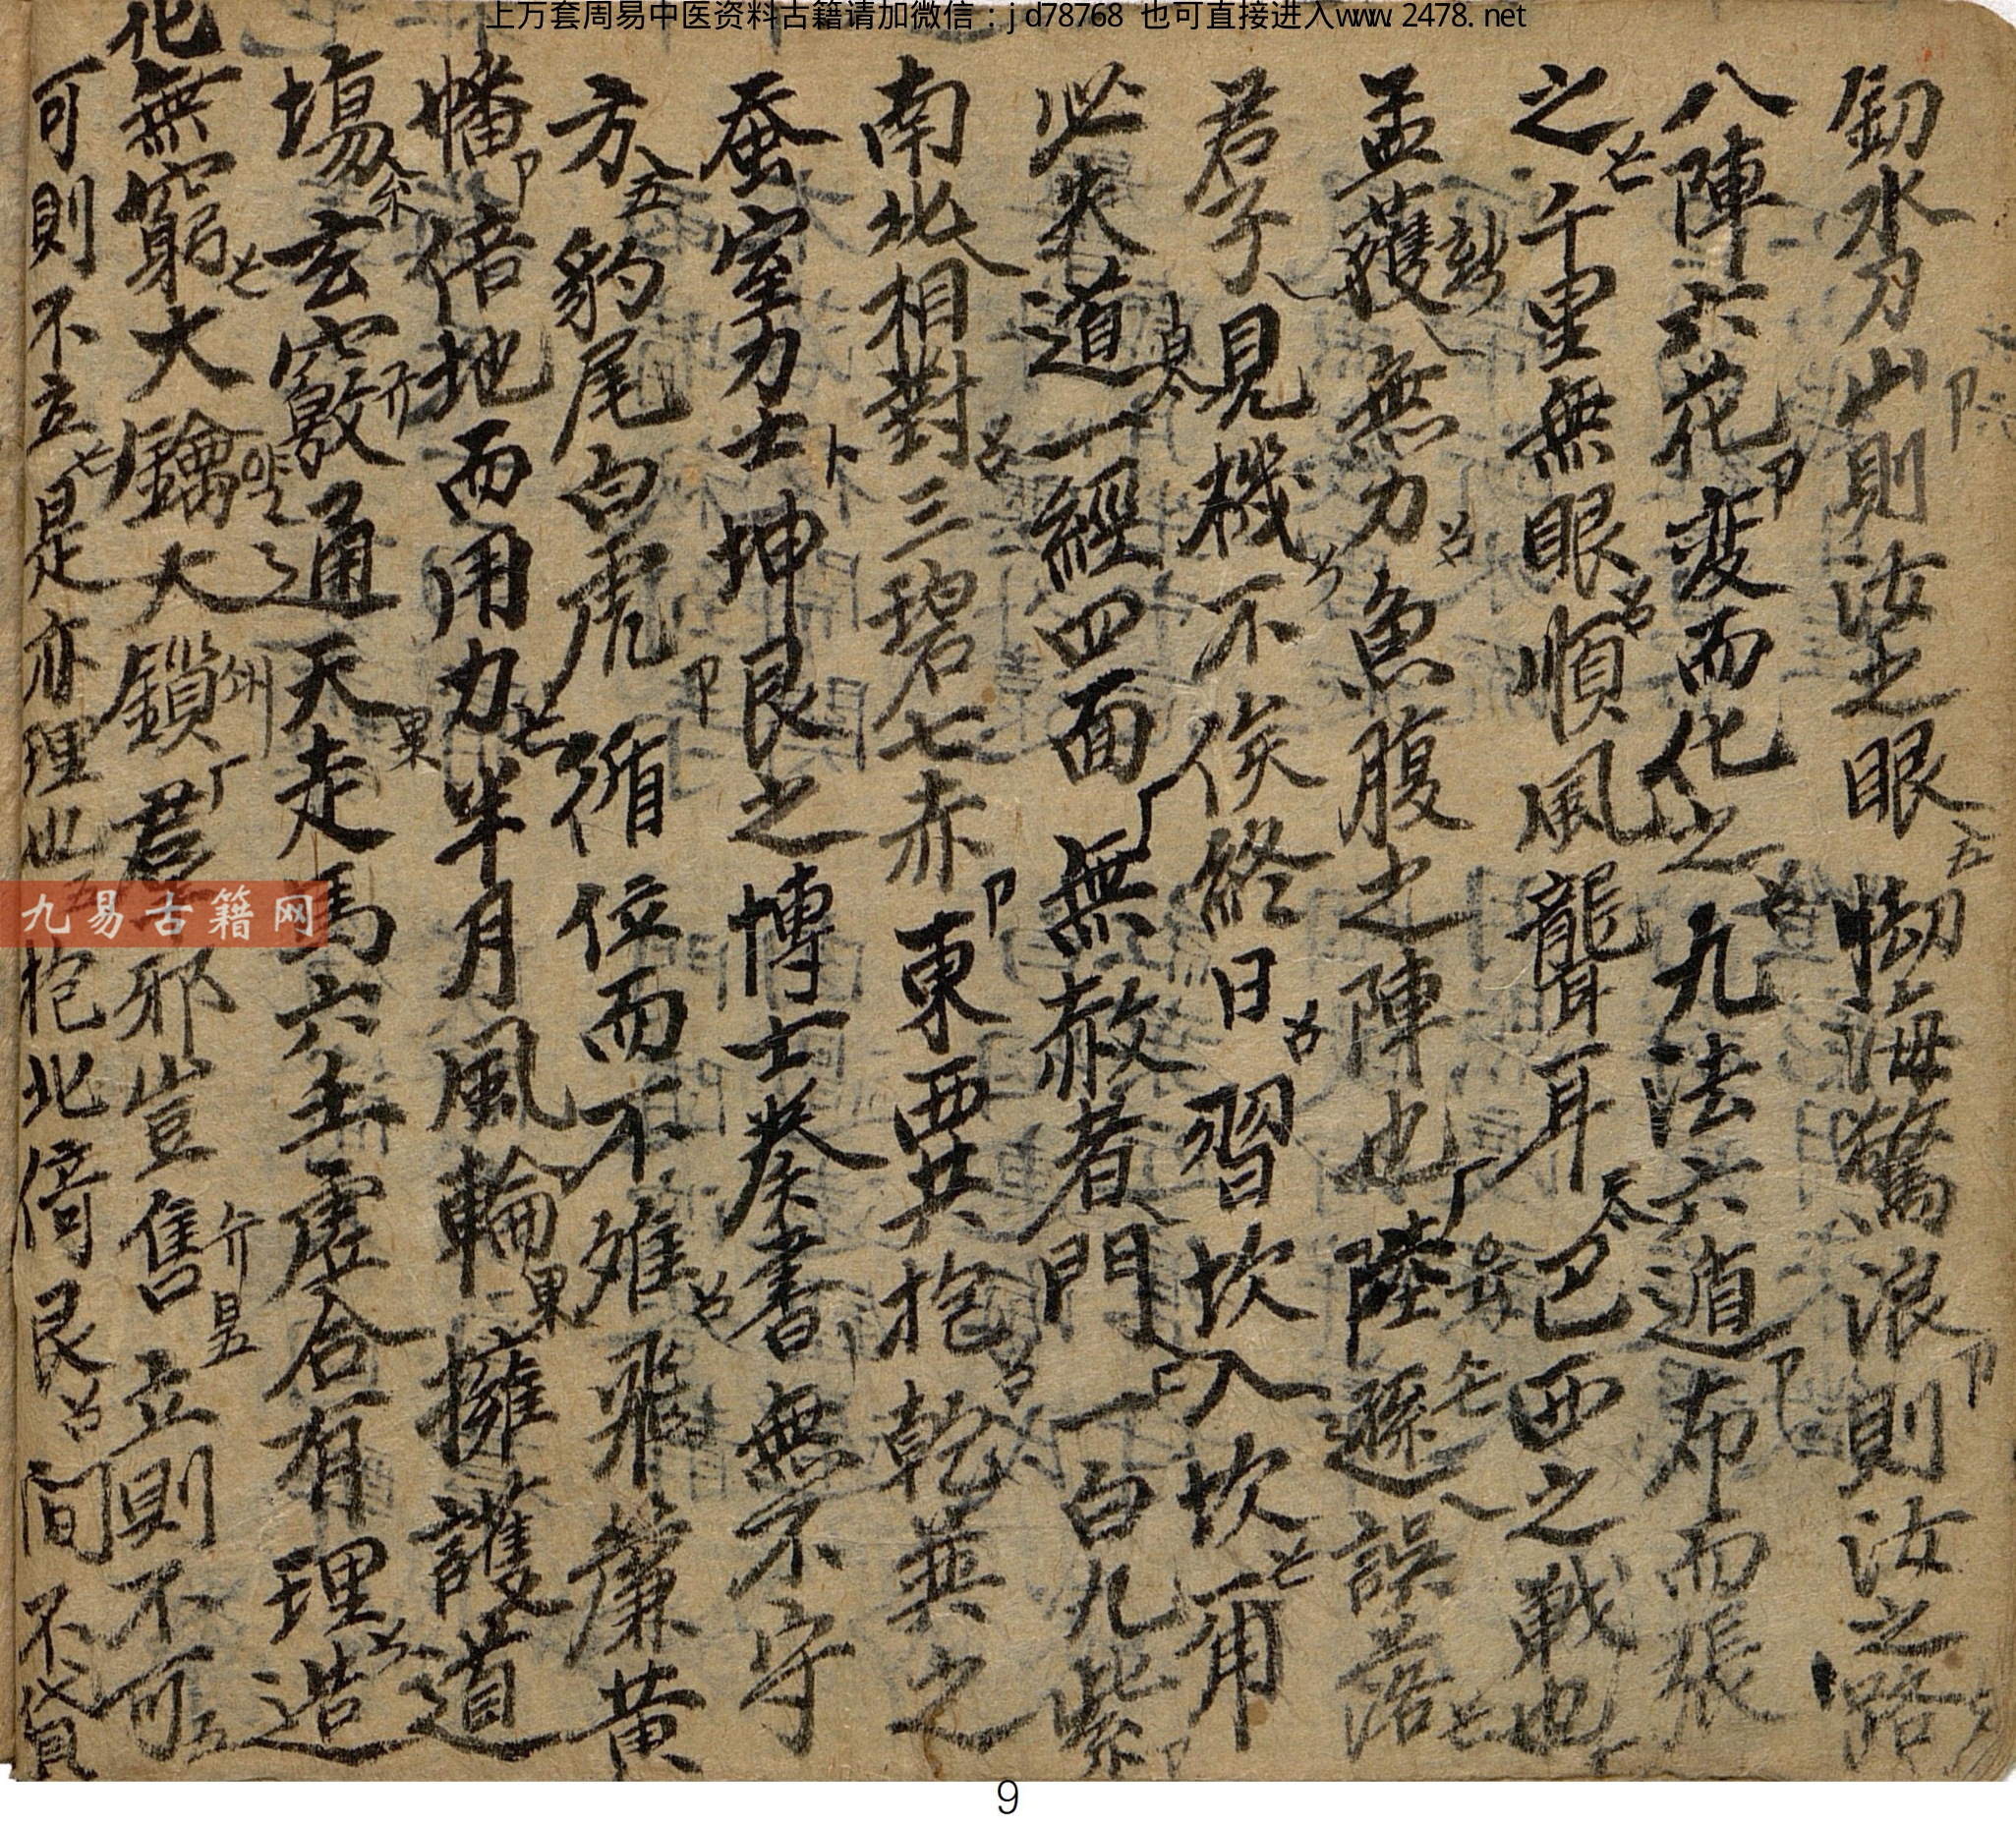 上万套周易中医资料古籍请加微信：jd78768 也可直接进入www.2478.net
釖水刀山則汝之眼五惱海驚浪則汝之路
八陣六花卩变而化之九法六遁卩布而張
之千里無眼順風聾耳巴西之戰也
孟獲無力魚腹之陣也陸遜誤落
君子見機不俟終日习坎入坎
必矢道一經四面無赦者門一白九紫
南北相對三碧七赤卩東西共抱乾巽之
蚕室力士卜坤艮之博士奏書無不守
方五豹尾白虎卩循位而不難飛簾黄
幡卩倍地而用力半月風輪果擁護道
塲玄竅通天果走馬六壬虛合有理造
化無窮大鑰大鎖君邪豈售立則不可五
可則不立是亦理也五抱北倚艮間不貸
九易古籍网
9